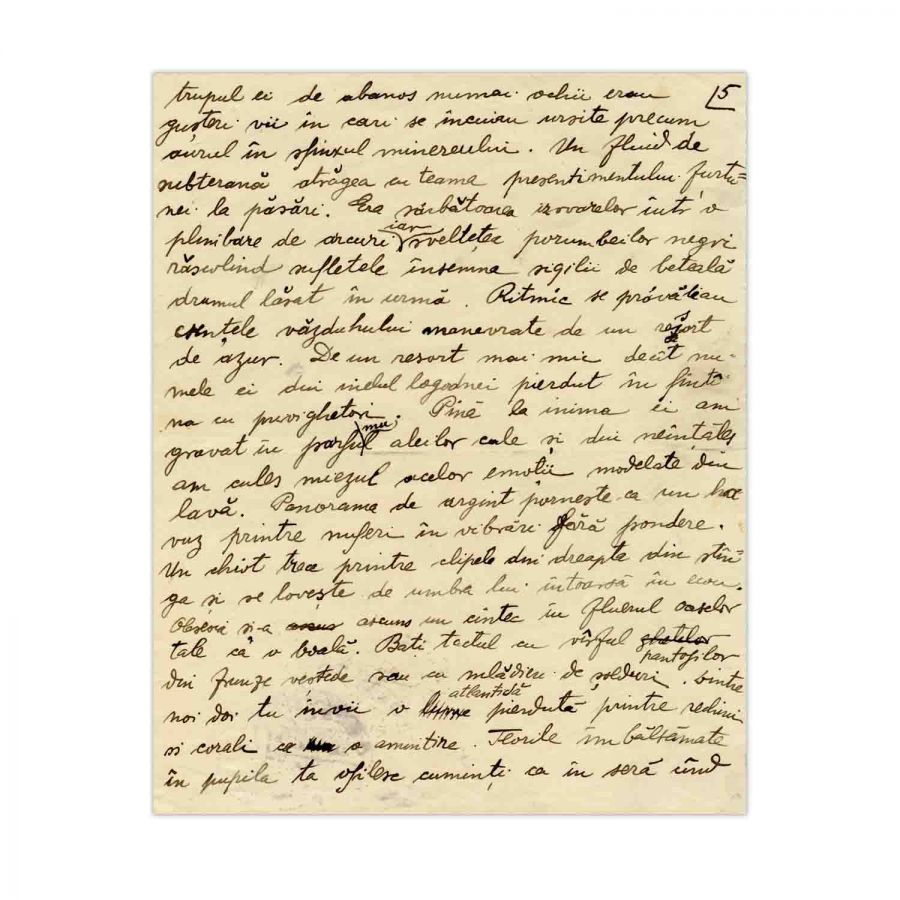 trupul ei de abanos numai ochii erau 5
gușteri vii în cari se încuiau ursite precum
aurul în sfinxul minereului. Un fluid de
subterană atrăgea cu teama presentimentului furtu-
nei la păsări. Era sărbătoarea izvoarelor într'o
plimbare de arcuri iar sveltețea porumbeilor negri
răscolind sufletele însemna sigilii de beteală
drumul lăsat în urmă. Ritmic se prăvăleau
văzduhului manevrate de un resort
de azur. De un resort mai mic decît nu-
mele ei din inelul logodnei pierdut în fîntî-
na cu privighetori. Pînă la inima ei am
gravat în parfumul aleilor cale și din neînțeles
am cules miezul acelor emoții modelate din
lavă. Panorama de argint pornește ca un ha-
vuz printre nuferi în vibrări fără pondere.
Un chiot trece printre clipele din dreapta din stîn-
ga și se lovește de umbra lui întoarsă în ecou.
Obsesia și-a ascuns un cîntec în fluerul oaselor
tale ca o boală. Bati tactul cu vîrful ghetelor
pantofilor
din frunze veștede sau cu mlădieri de șolduri. Dintre
atlantidă
noi doi tu învii o pierdută printre rechini
si corali ca o amintire. Florile îmbălsămate
în pupila ta ofilesc cuminți ca în seră cînd